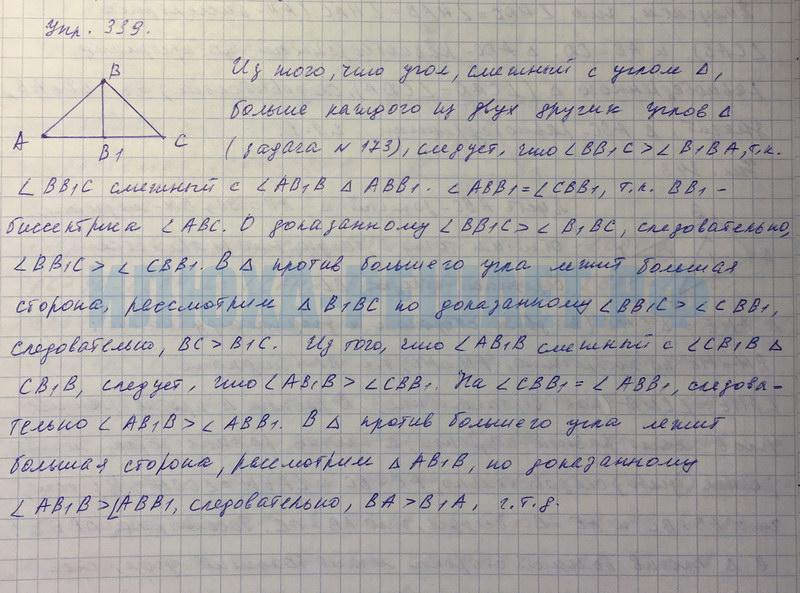 Упр. 339.
B
A
B1
C
Из того, что угол, смежный с углом Δ,
больше каждого из двух других углов Δ
(задача № 173), следует, что ∠BB1C > ∠B1BA, т.к.
∠BB1C смежный с ∠AB1B Δ ABB1. ∠ABB1 = ∠CBB1, т.к. BB1 -
биссектриса ∠ABC. О доказанному ∠BB1C > ∠B1BC, следовательно,
∠BB1C > ∠CBB1. В Δ против большего угла лежит большая
сторона, рассмотрим Δ B1BC по доказанному ∠BB1C > ∠CBB1,
следовательно, BC > B1C. Из того, что ∠AB1B смежный с ∠CB1B Δ
CB1B, следует, что ∠AB1B > ∠CBB1. На ∠CBB1 = ∠ABB1, следова-
тельно ∠AB1B > ∠ABB1. В Δ против большего угла лежит
большая сторона, рассмотрим Δ AB1B, по доказанному
∠AB1B > [ABB1, следовательно, BA > B1A, ч.т.д.